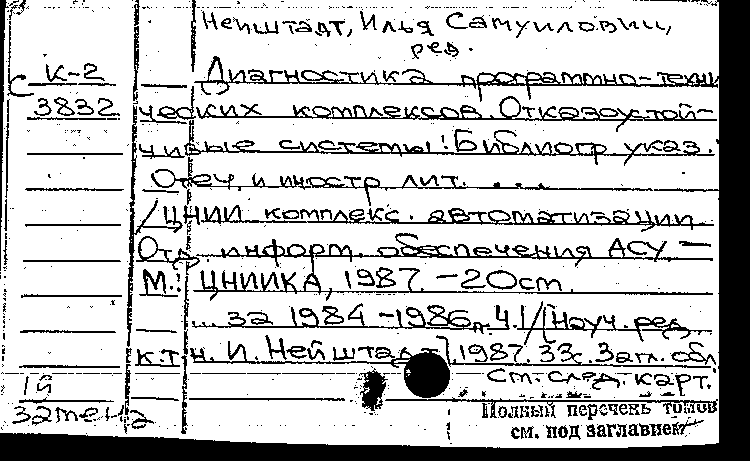 Нейштадт, Илья Самуилович,
ред.
К-2
Диагностика программно-техни
С
3832
ческих комплексов. Отказоустой-
чивые системы: Библиогр. указ.
Отеч. и иностр. лит. ...
/ЦНИИ комплекс. автоматизации
Отд. информ. обеспечения АСУ. —
М.: ЦНИИКА, 1987. - 20 см.
... за 1984-1986, ч.1/[Науч. ред.
к.т.н. И. Нейштадт]. 1987. 33с. Загл. обл
См. след. карт.
19
замена
Полный перечень томов
см. под заглавием